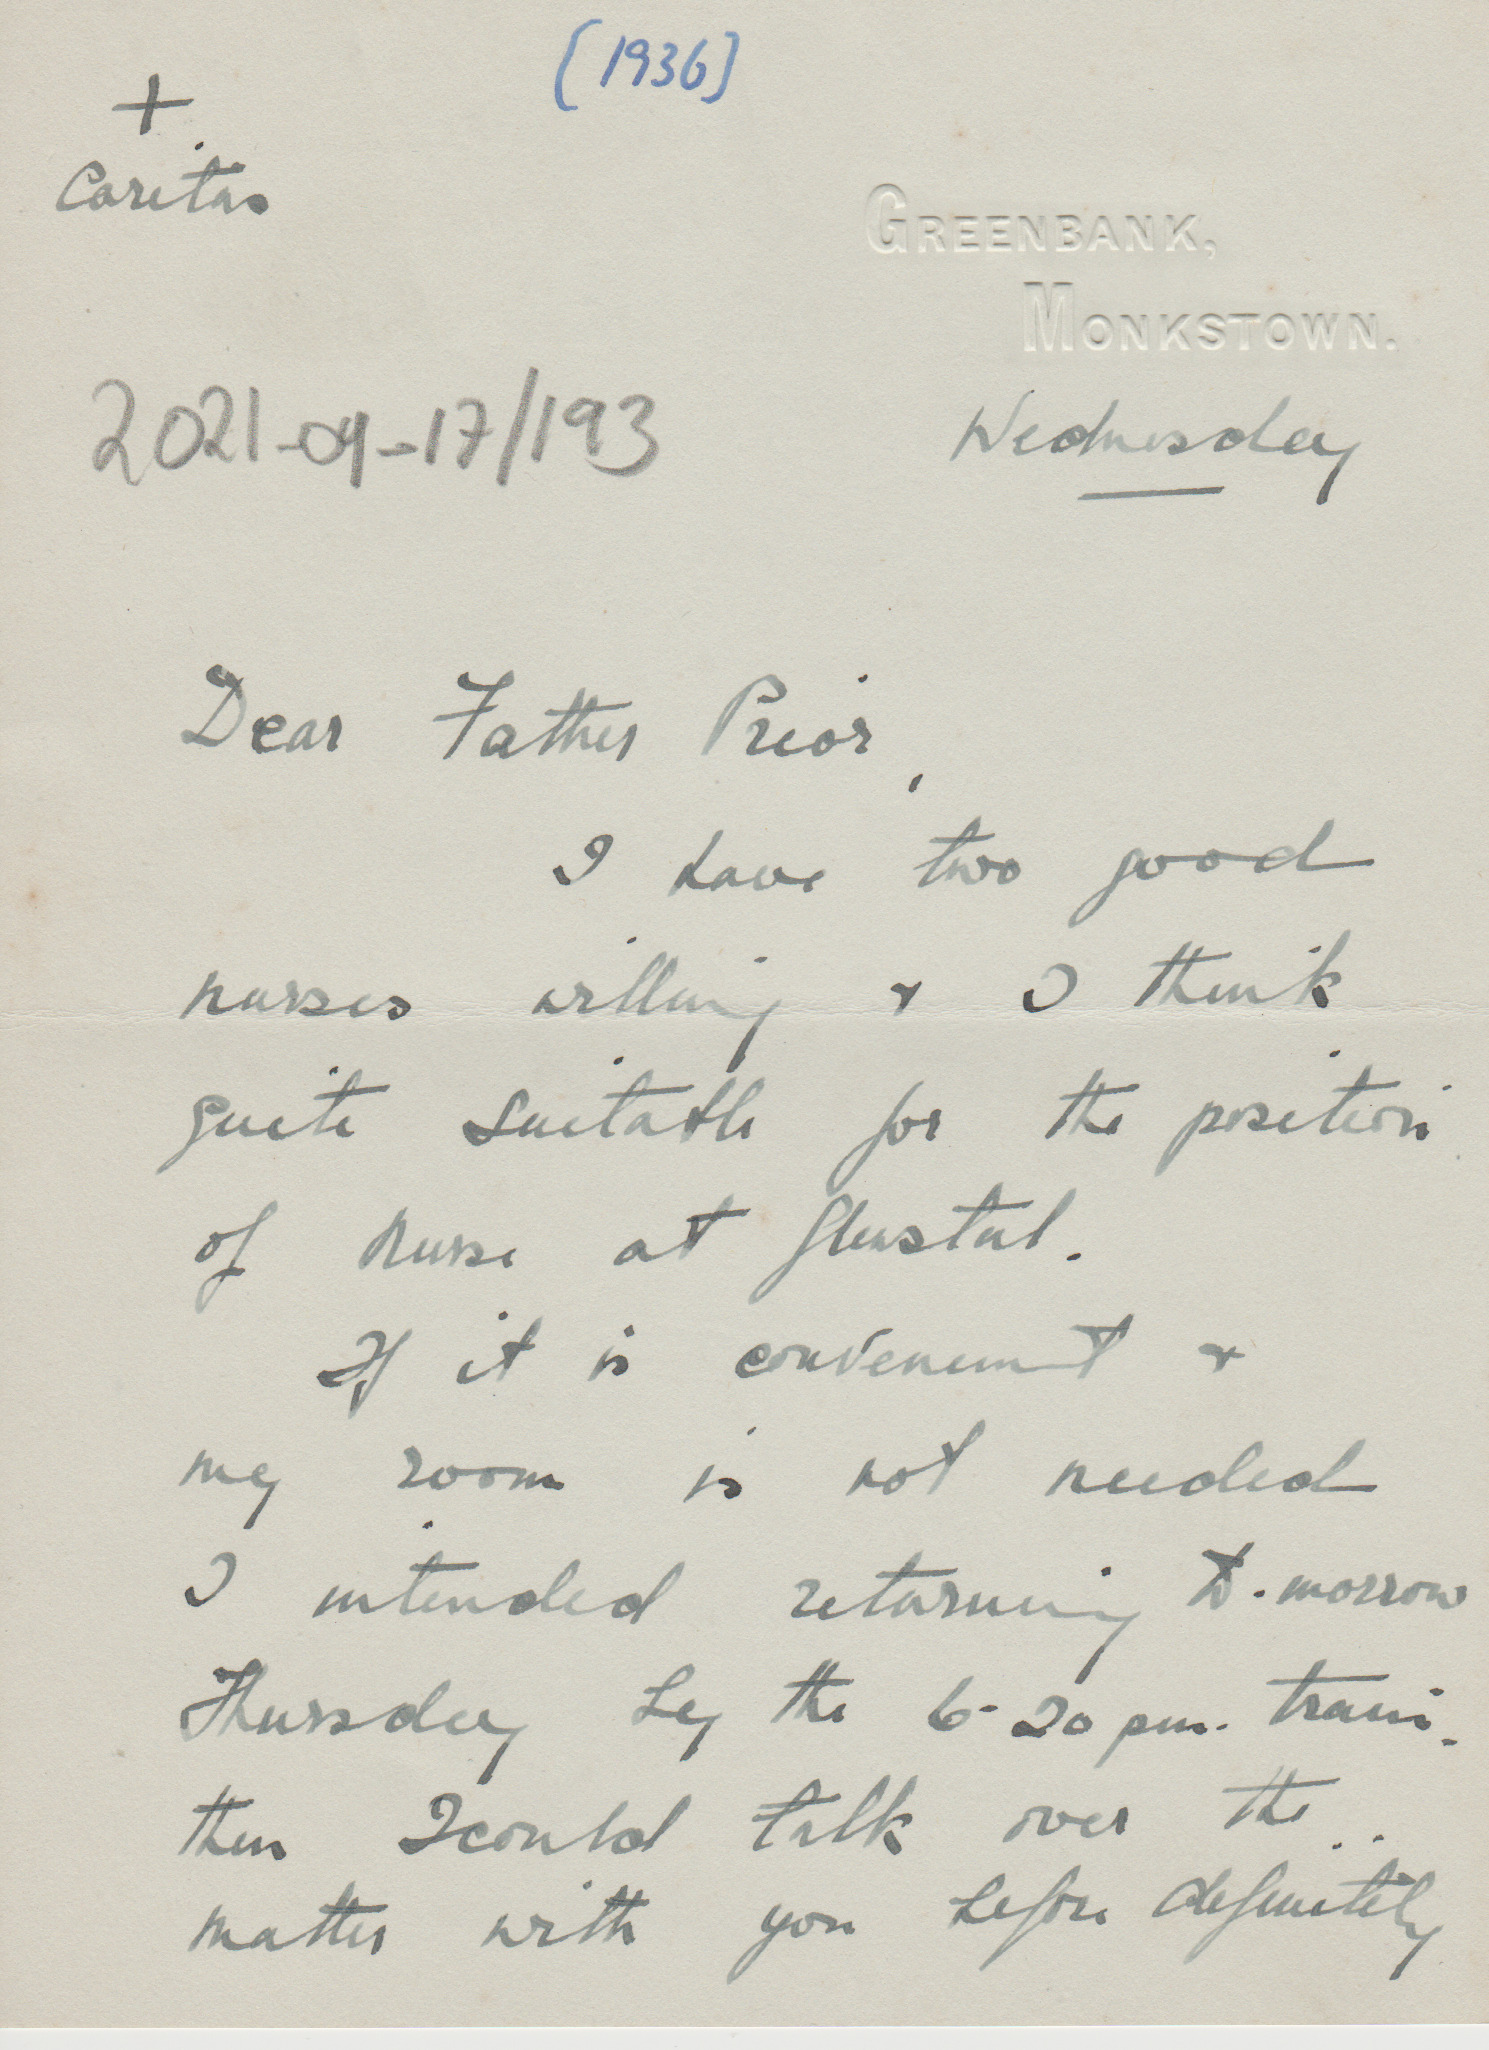 [1936]
+
Caritas
GREENBANK,
MONKSTOWN.
2021-04-17/193
Wednesday
Dear Father Prior,
I have two good
nurses willing & I think
quite suitable for the position
of nurse at Glenstal.
If it is convenient &
my room is not needed
I intended returning to-morrow
Thursday by the 6-20 pm. train.
then I could talk over the
matter with you before definitely